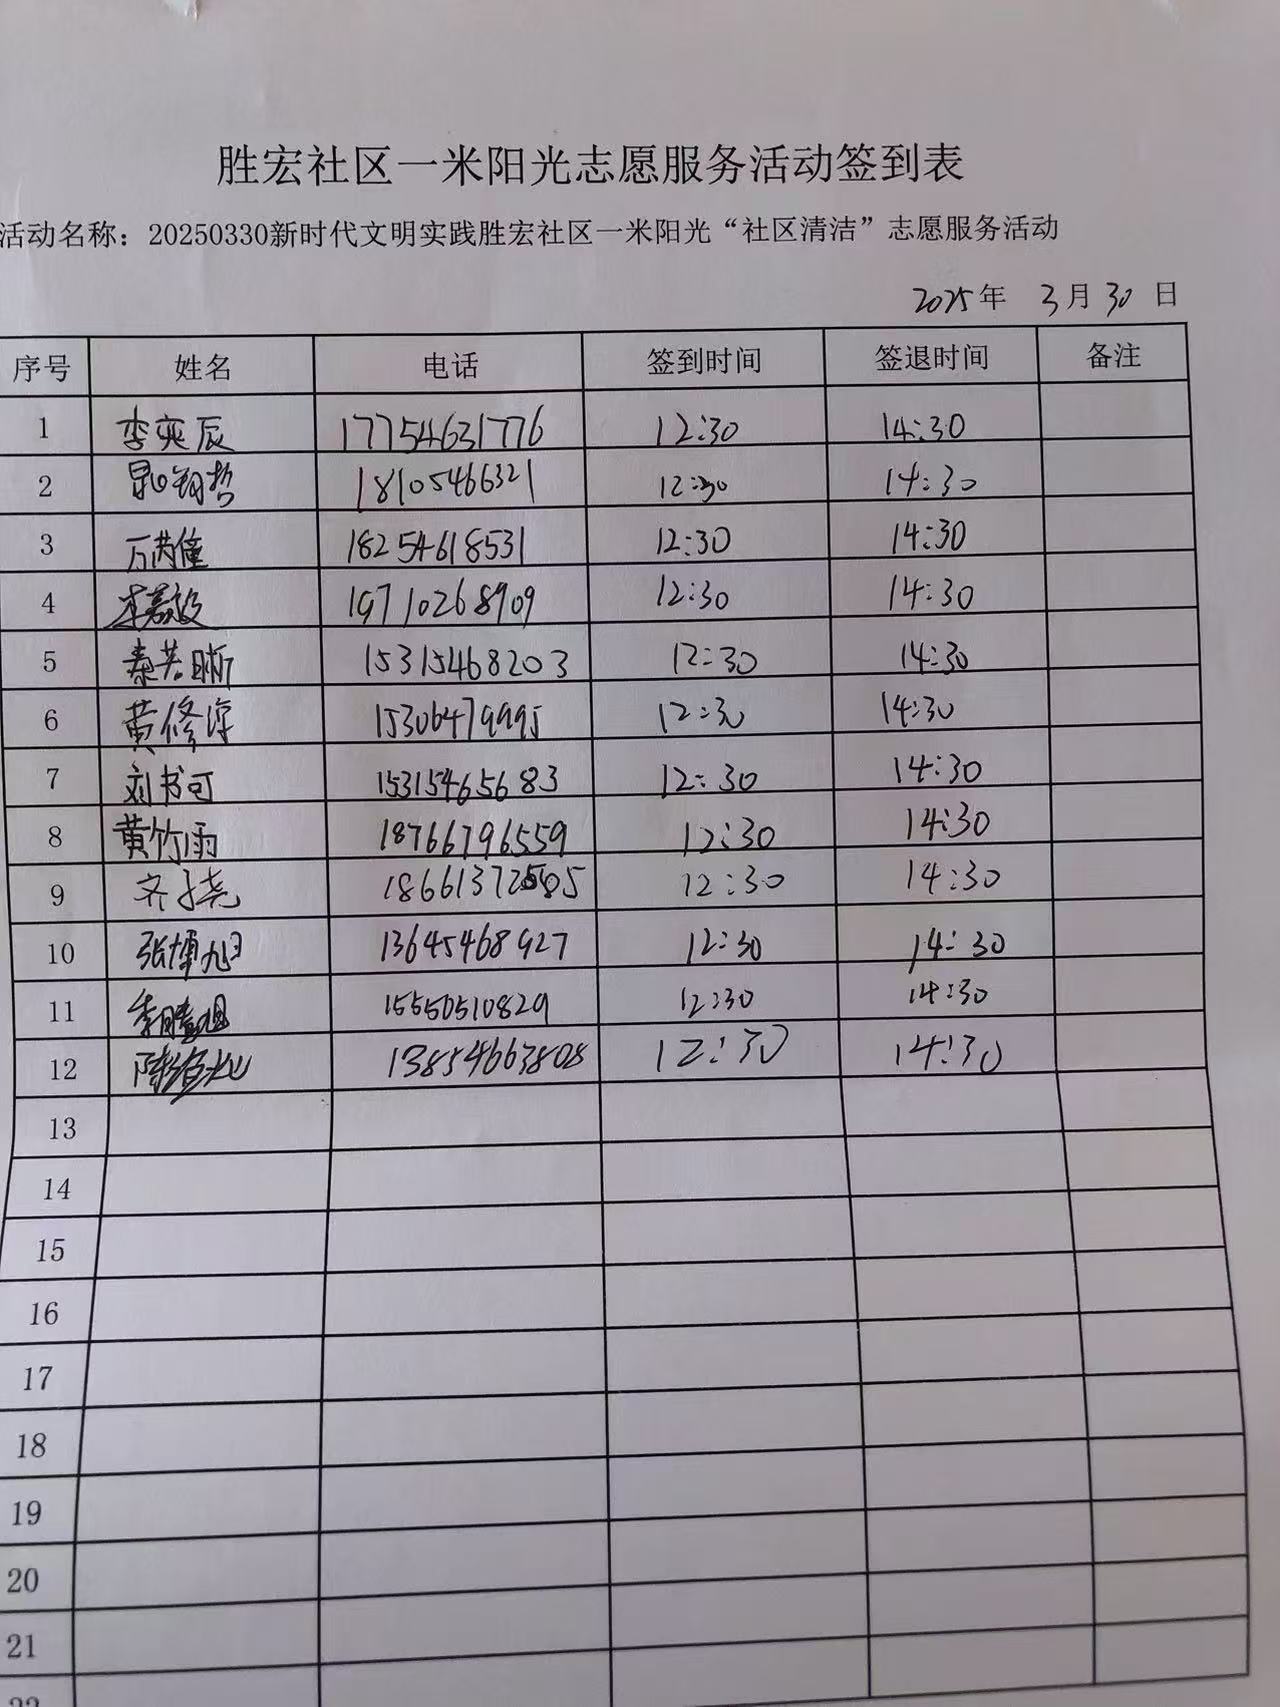 胜宏社区一米阳光志愿服务活动签到表
活动名称：20250330新时代文明实践胜宏社区一米阳光“社区清洁”志愿服务活动
2025年 3月30日
序号 姓名 电话 签到时间 签退时间 备注
1 李奕辰 17754631776 12:30 14:30
2 18105466321 12:30 14:30
3 万芮僮 18254618531 12:30 14:30
4 19710268909 12:30 14:30
5 秦若晰 15315468203 12:30 14:30
6 黄修淳 15306479995 12:30 14:30
7 刘书可 15315465683 12:30 14:30
8 黄竹雨 18766796559 12:30 14:30
9 齐子尧 12:30 14:30
10 张博旭 13645468927 12:30 14:30
11 15550510829 12:30 14:30
12 13854663808 12:30 14:30
13
14
15
16
17
18
19
20
21
22